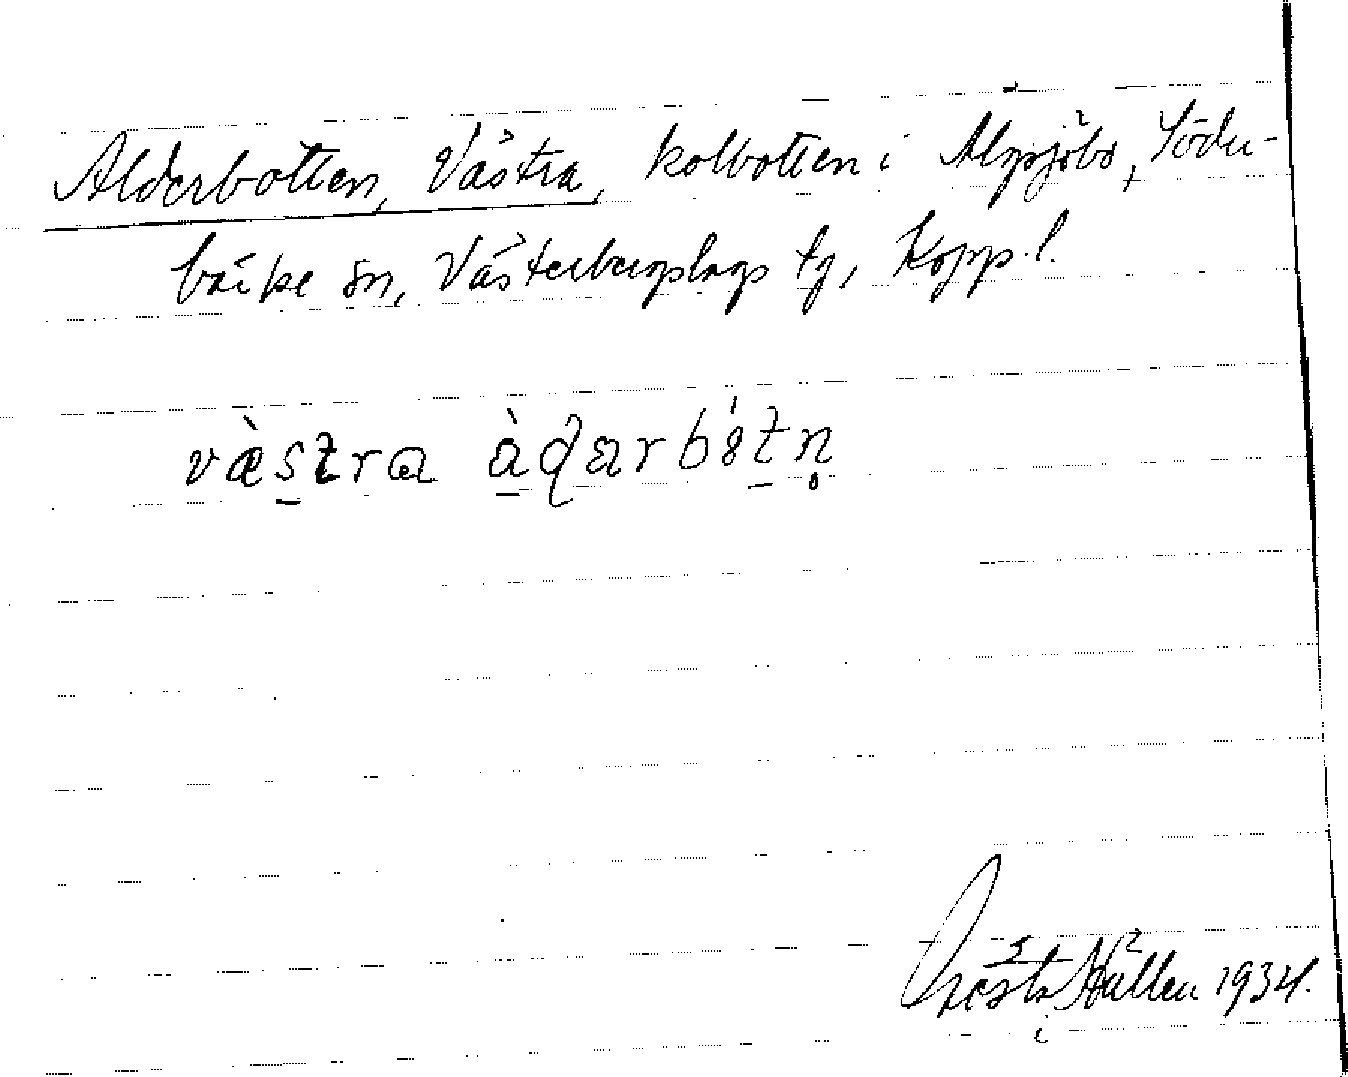 Alderbotten, Västra, kolbotten i Algsjöbo, Söder-
bärke sn, Västerbergslags tg, Kopp. l.
vàstra àdarbótn̥
Gösta Hallen 1934.